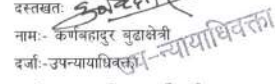 दस्तखतः
नामः- कर्णबहादुर बुढाक्षेत्री
दर्जाः-उपन्यायाधिवक्ता
उप-न्यायाधिवक्ता